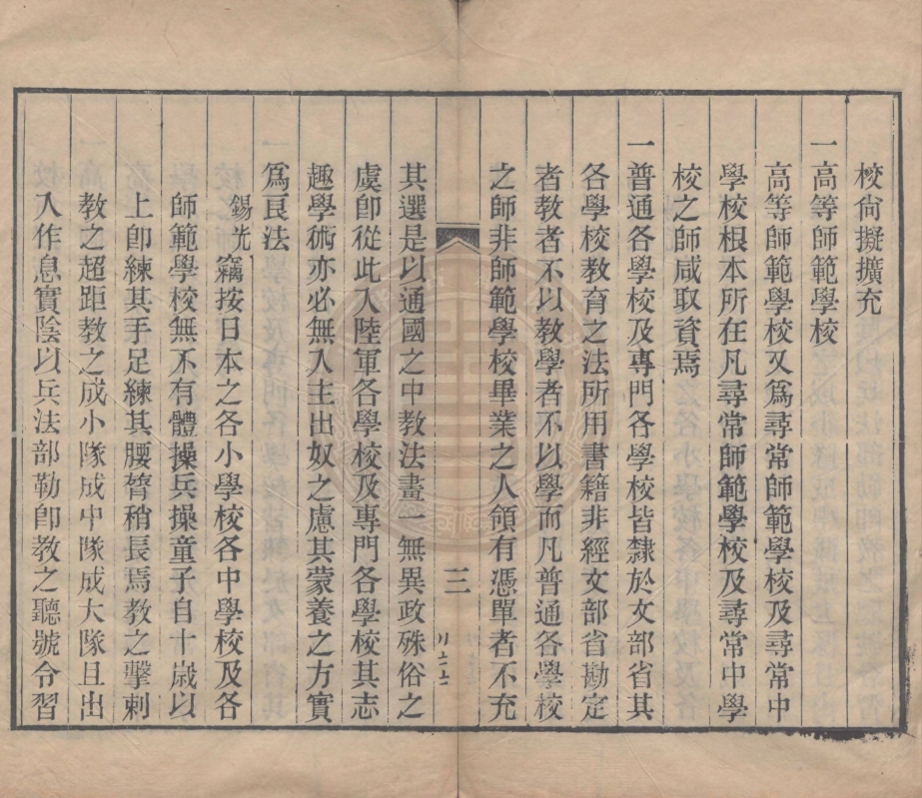 校尙擬擴充
一高等師範學校
高等師範學校又爲尋常師範學校及尋常中
學校根本所在凡尋常師範學校及尋常中學
校之師咸取資焉
一普通各學校及專門各學校皆隸於文部省其
各學校教育之法所用書籍非經文部省勘定
者教者不以教學者不以學而凡普通各學校
之師非師範學校畢業之人領有憑單者不充
三
其選是以通國之中教法畫一無異政殊俗之
虞卽從此入陸軍各學校及專門各學校其志
趣學術亦必無入主出奴之慮其蒙養之方實
爲良法
錫光竊按日本之各小學校各中學校及各
師範學校無不有體操兵操童子自十歲以
上卽練其手足練其腰膂稍長焉教之擊刺
教之超距教之成小隊成中隊成大隊且出
入作息實陰以兵法部勒卽教之聽號令習